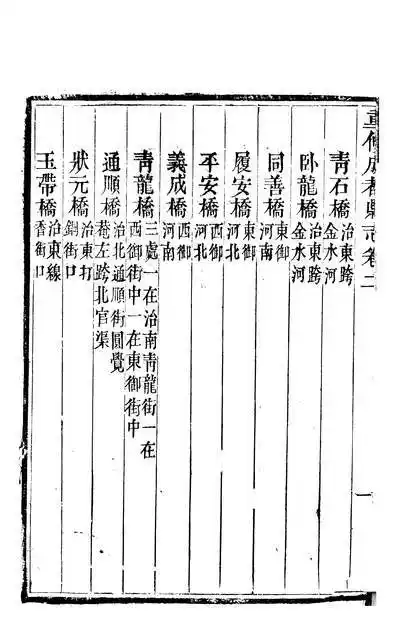 重修成都縣志卷二
一
靑石橋 治東跨
金水河
卧龍橋 治東跨
金水河
同善橋 東御
河南
履安橋 東御
河北
平安橋 西御
河北
義成橋 西御
河南
靑龍橋 三處一在治南靑龍街一在
西御街中一在東御街中
通順橋 治北通順街圓覺
菴左跨北官渠
狀元橋 治東打
銅街口
玉帶橋 治東線
香街口